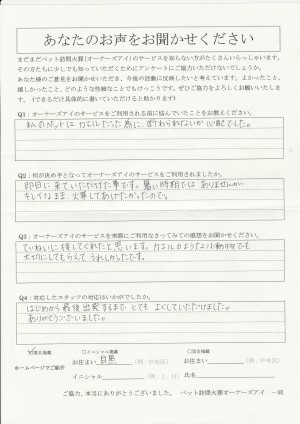 あなたのお声をお聞かせください
まだまだペット訪問火葬(オーナーズアイ)のサービスを知らない方がたくさんいらっしゃいます。
その方たちに少しでも知っていただくためにアンケートにご協力いただけないでしょうか。
あなた様のご意見をお聞かせいただき、今後の活動に反映したいと考えています。よかったこと、
嬉しかったこと、どのような些細なことでもけっこうです。ぜひご協力をよろしくお願いいたします。
(できるだけ具体的に書いていただけると助かります)
Q1:オーナーズアイのサービスをご利用される前に悩んでいたことをお教えください。
私のペットはカエルだった為に断わられないか心配でした。
Q2:何が決め手となってオーナーズアイのサービスをご利用されましたか。
即日に来ていただけた事です。暑い時期ではありませんが
キレイなまま、火葬してあげたかったので。
Q3:オーナーズアイのサービスを実際にご利用なさってみての感想をお聞かせください。
ていねいに接してくれたと思います。カエルのような小動物でも
大切にしてもらえてうれしかったです。
Q4:対応したスタッフの対応はいかがでしたか。
はじめから最後出発するまでとてもよくしていただけました。
ありがとうございました。
□匿名掲載 □イニシャル掲載 □実名掲載
お住まい 目黒 (例:中央区) お住まい (例:中央区)
ホームページでご紹介
イニシャル (例:J.H) 氏名
ご協力、本当にありがとうございました。 ペット訪問火葬オーナーズアイ 一同